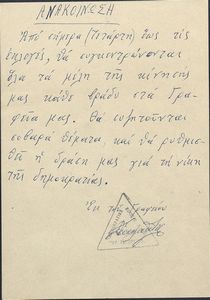 ΑΝΑΚΟΙΝΩΣΗ
Ἀπό σήμερα (Τετάρτη) ἕως τίς
ἐκλογές, θά συγκεντρώνονται
ὅλα τά μέλη τῆς κίνησής
μας κάθε βράδυ στά Γρα-
φεῖα μας. Θά συζητοῦνται
σοβαρά θέματα, καί θά ρυθμισ-
θεῖ ἡ δράση μας γιά τή νίκη
τῆς δημοκρατίας.
Ἐκ τοῦ Γραφείου